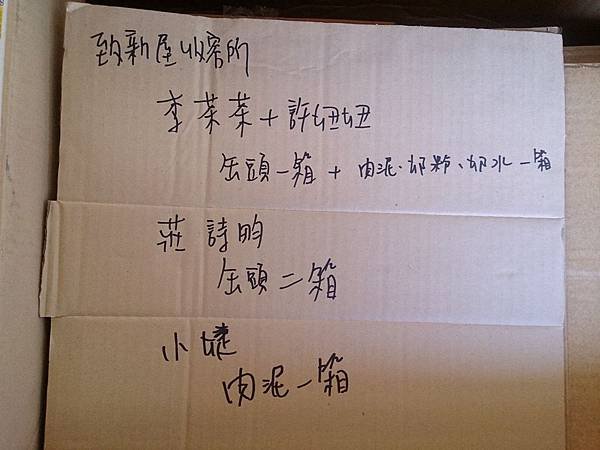 致新屋收容所
李茶茶+許妞妞
缶頭一箱+肉泥、奶粉、奶水一箱
莊詩昀
缶頭二箱
小婕
肉泥一箱